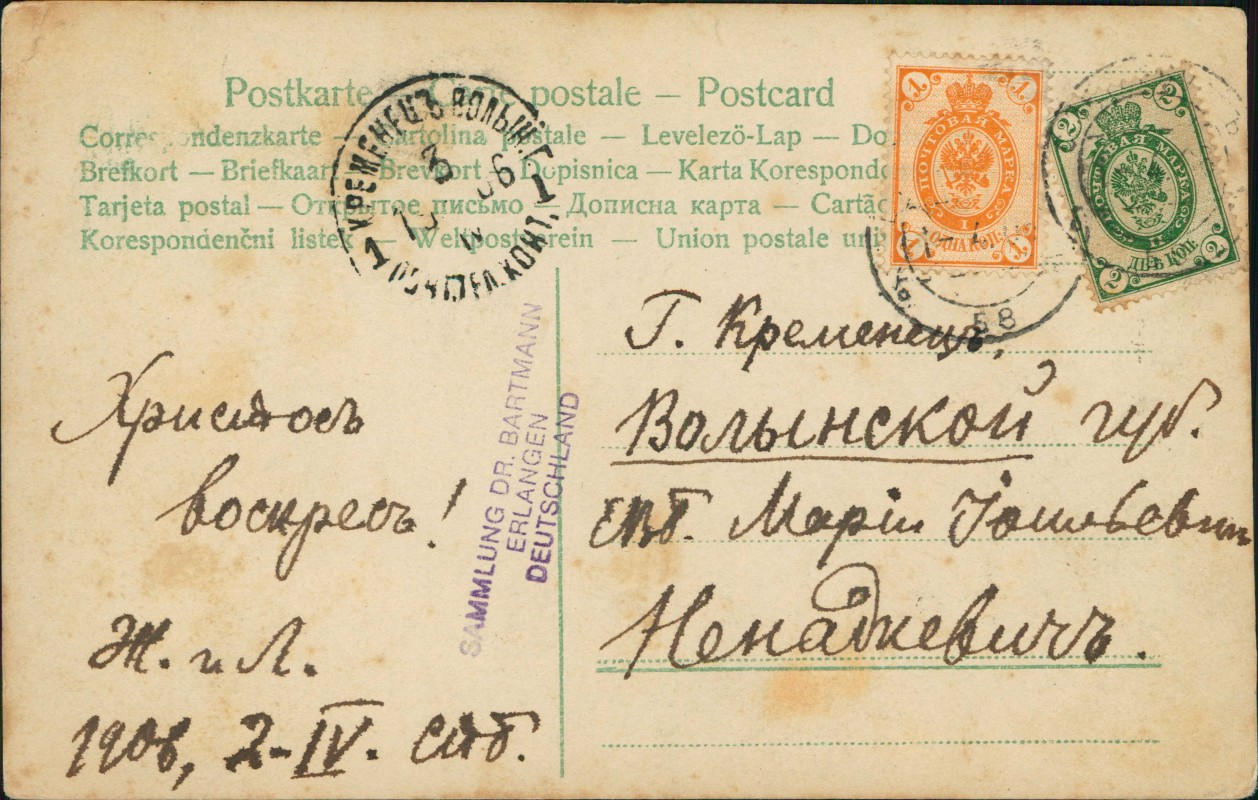 Postkarte — Carte postale — Postcard
Correspondenzkarte — Cartolina postale — Levelezö-Lap —
Brefkort — Briefkaart — Brevkort — Dopisnica — Karta
Tarjeta postal — Открытое письмо — Дописна карта —
Korespondenční listek — Weltpostverein — Union postale
КРЕМЕНЕЦЪ ВОЛЫН. Г.
1 1
ПОЧТ. ТЕЛ. КОНТ.
1 1
ПОЧТОВАЯ МАРКА
1
1 1
2 2
ПОЧТОВАЯ МАРКА
ДВѢ КОП.
2 2
58
Христосъ
воскресъ!
Ж. и Л.
2-IV. стб.
SAMMLUNG DR. BARTMANN
ERLANGEN
DEUTSCHLAND
Г. Кременецъ,
Волынской губ.
Маріи
Ненадкевичъ.